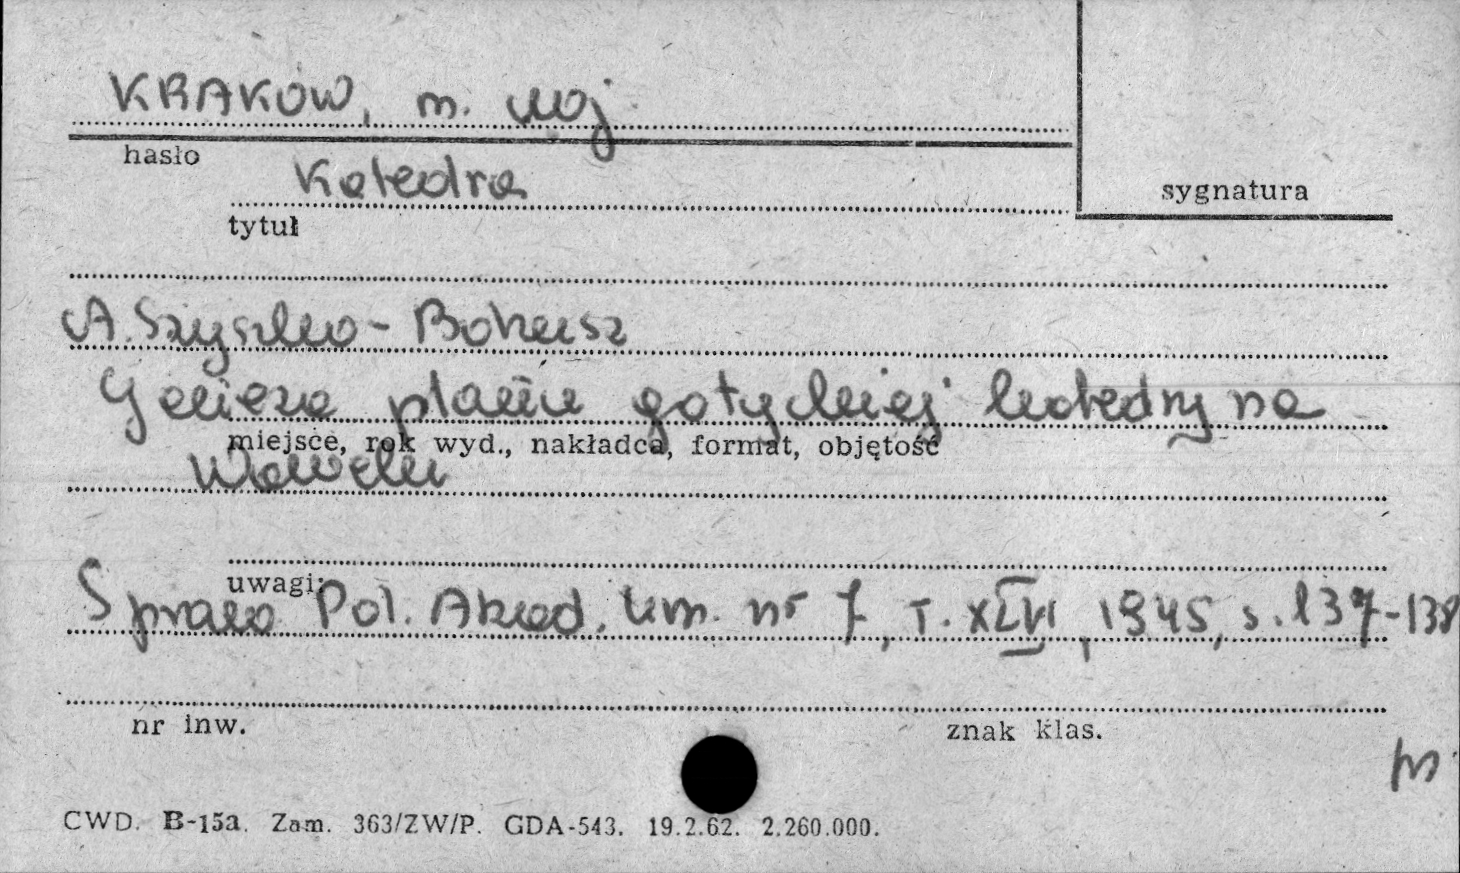 KRAKÓW, m. woj
hasło
sygnatura
Katedra
tytuł
A. Szyszko-Bohusz
Geneza planu gotyckiej katedry na
miejsce, rok wyd., nakładca, format, objętość
Wawelu
uwagi:
Spraw Pol. Akad. Um. nr 7, T. XLVI, 1945, s. 137-138
nr inw.
znak klas.
CWD. B-15a. Zam. 363/ZW/P. GDA-543. 19.2.62. 2.260.000.